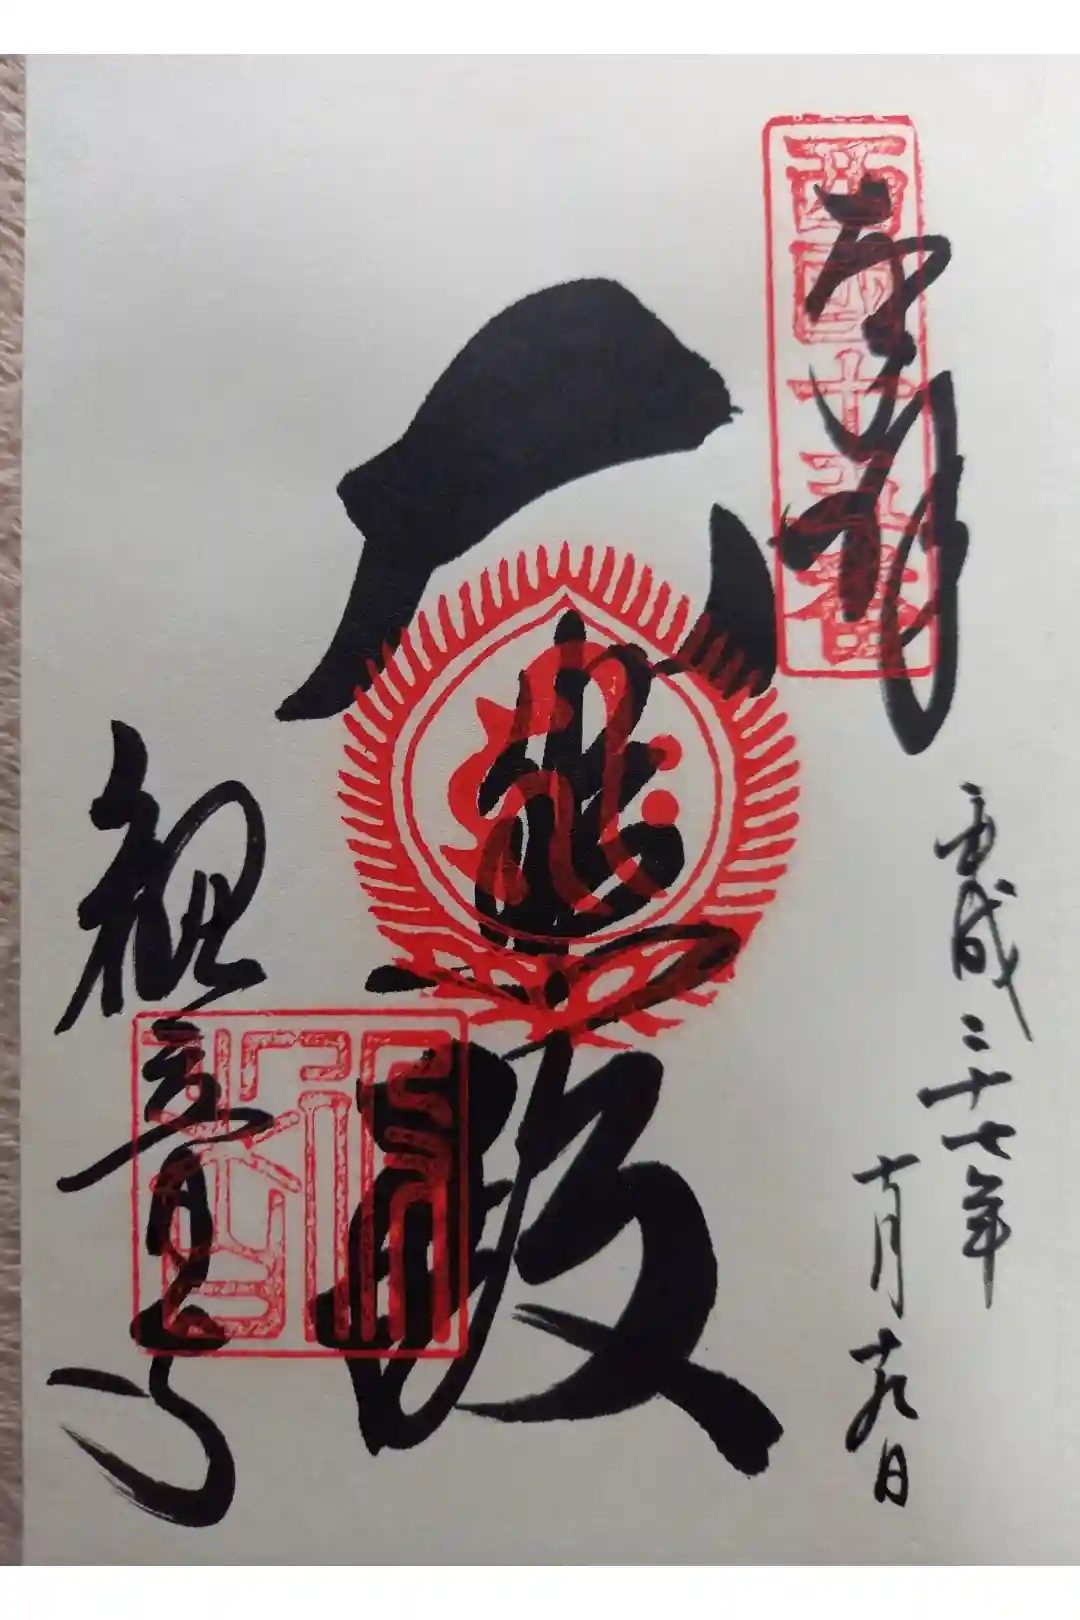 奉拝
西国十五番
平成二十七年
十月十九日
大悲殿
観音寺